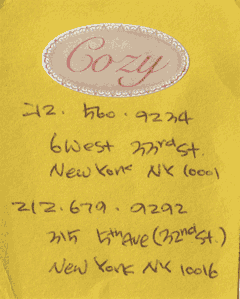 Cozy
212. 560. 9234
6 West 33rd St.
New York NY 10001
212. 679. 9292
315 5th Ave (32nd St.)
New York NY 10016